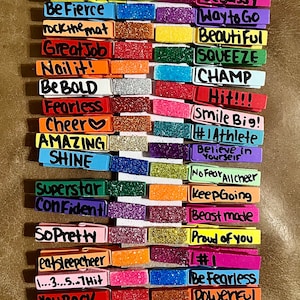 Be Fierce
Way to Go
rock the mat
Beautiful
Great Job
SQUEEZE
Nail it!
CHAMP
Be BOLD
Hit!!!
Fearless
Smile Big!
Cheer♡
#1 Athlete
AMAZING
Believe in
Yourself
SHINE
No Fear All cheer
Superstar
Keep Going
Confident
Beast mode
So Pretty
Proud of you
eat sleep Cheer
#1
1...3...5..7 Hit
Be Fearless
POWERFUL